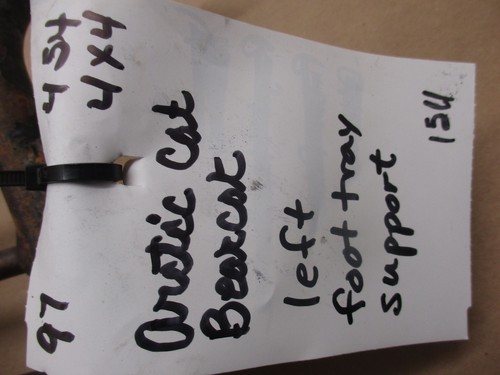 97 454
4x4
Arctic Cat
Bearcat
left
foot tray
support
154